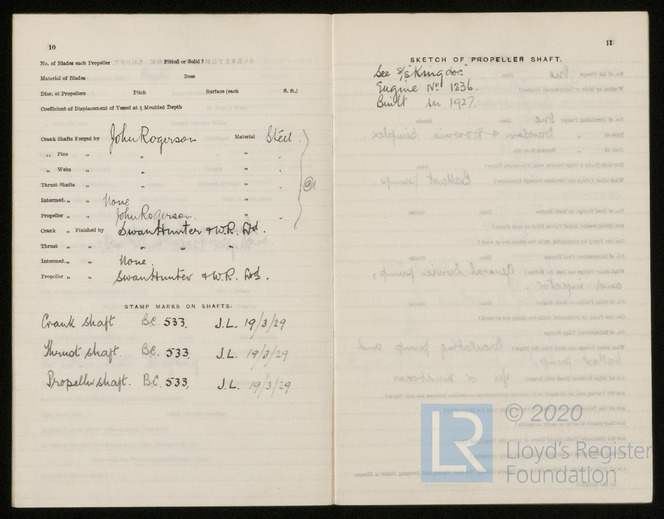 10
No. of Blades each Propeller Fitted or Solid?
Material of Blades Boss
Diar. of Propellers Pitch Surface (each S. ft.)
Coefficient of Displacement of Vessel at ½ Moulded Depth
Crank Shafts Forged by John Rogerson Material Steel
„ Pins „ „ „ „
„ Webs „ „ „ „
Thrust Shafts „ „ „ „
Intermed. „ „ None
Propeller „ „ John Rogerson. „ „
Crank „ Finished by Swan Hunter & W.R. Ltd.
Thrust „ „ „ „ „
Intermed. „ „ None.
Propeller „ „ Swan Hunter & W.R. Ltd.
STAMP MARKS ON SHAFTS.
Crank shaft B.C. 533. J.L. 19/3/29
Thrust shaft. B.C. 533 J.L. 19/3/29
Propeller shaft. B.C. 533. J.L. 19/3/29
11
SKETCH OF PROPELLER SHAFT.
See S/S
Engine No 1236.
Built in 1927.
LR
© 2020
Lloyd's Register
Foundation